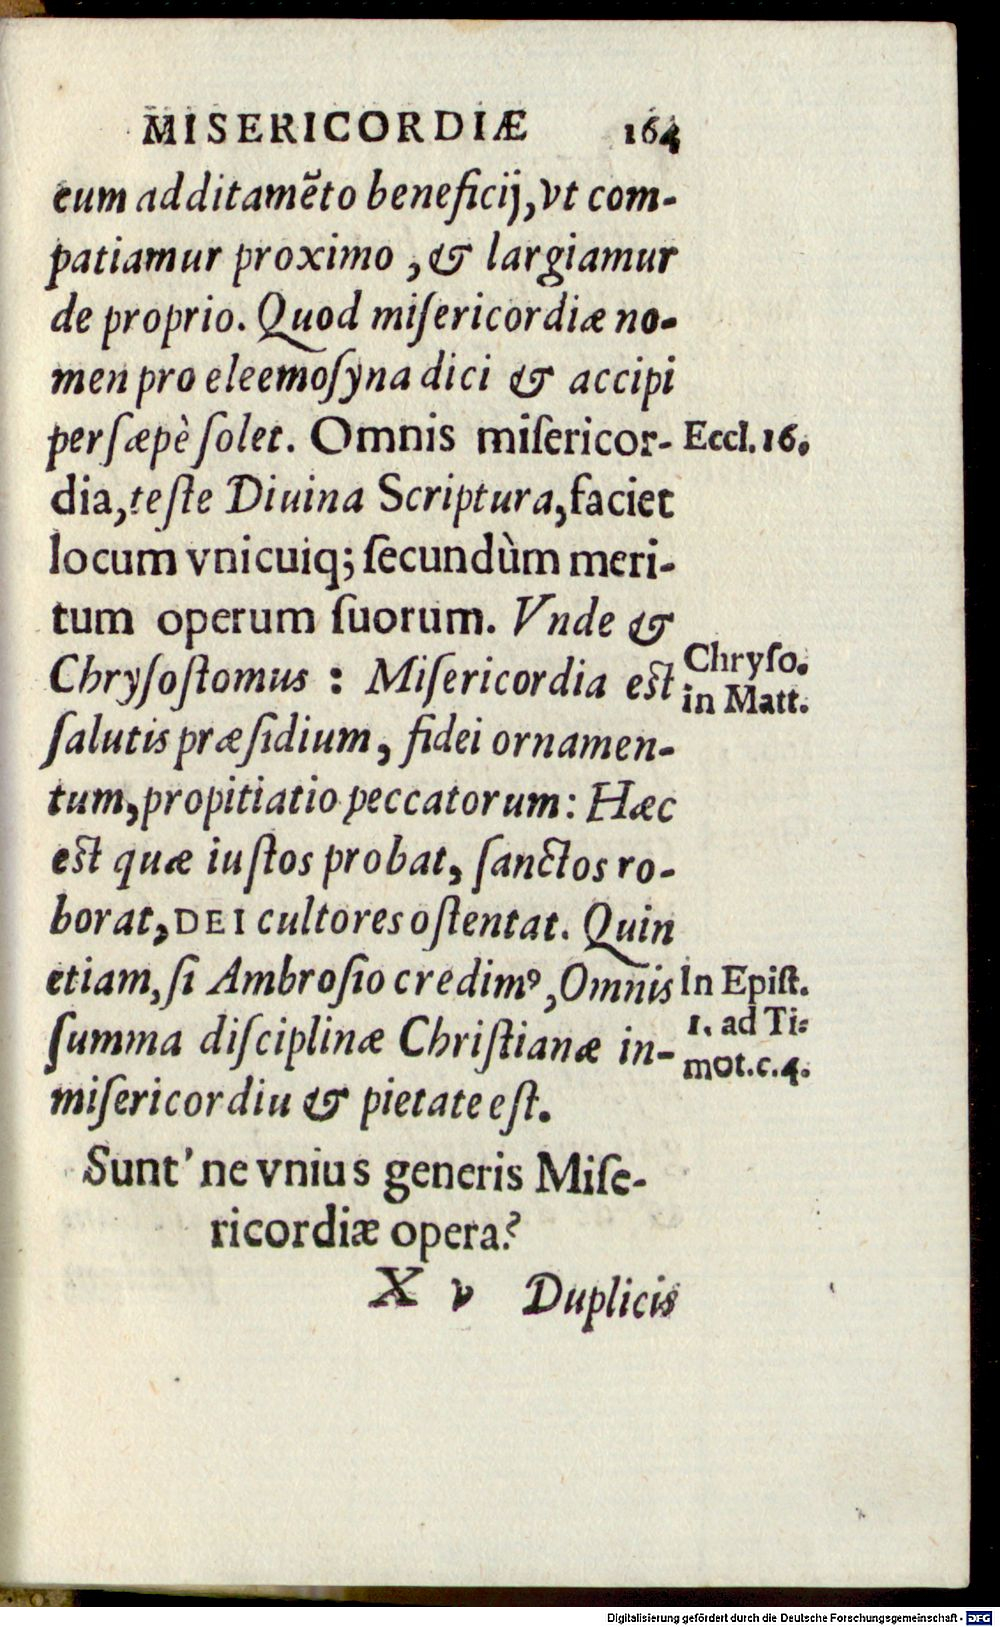 MISERICORDIÆ 164
eum additamẽto beneficij, vt com-
patiamur proximo, & largiamur
de proprio. Quod miſericordiæ no-
men pro eleemoſyna dici & accipi
perſæpè ſolet. Omnis miſericor-
Eccl. 16.
dia, teſte Diuina Scriptura, faciet
locum vnicuiq; ſecundùm meri-
tum operum ſuorum. Vnde &
Chryſoſtomus : Miſericordia eſt
Chryſo.
in Matt.
ſalutis præſidium, fidei ornamen-
tum, propitiatio peccatorum: Hæc
eſt quæ iuſtos probat, ſanctos ro-
borat, DEI cultores oſtentat. Quin
etiam, ſi Ambroſio credimꝰ, Omnis
In Epiſt.
1. ad Ti-
mot. c. 4.
ſumma diſciplinæ Chriſtianæ in-
miſericordiu & pietate eſt.
Sunt' ne vnius generis Miſe-
ricordiæ opera?
X v Duplicis
Digitalisierung gefördert durch die Deutsche Forschungsgemeinschaft - DFG